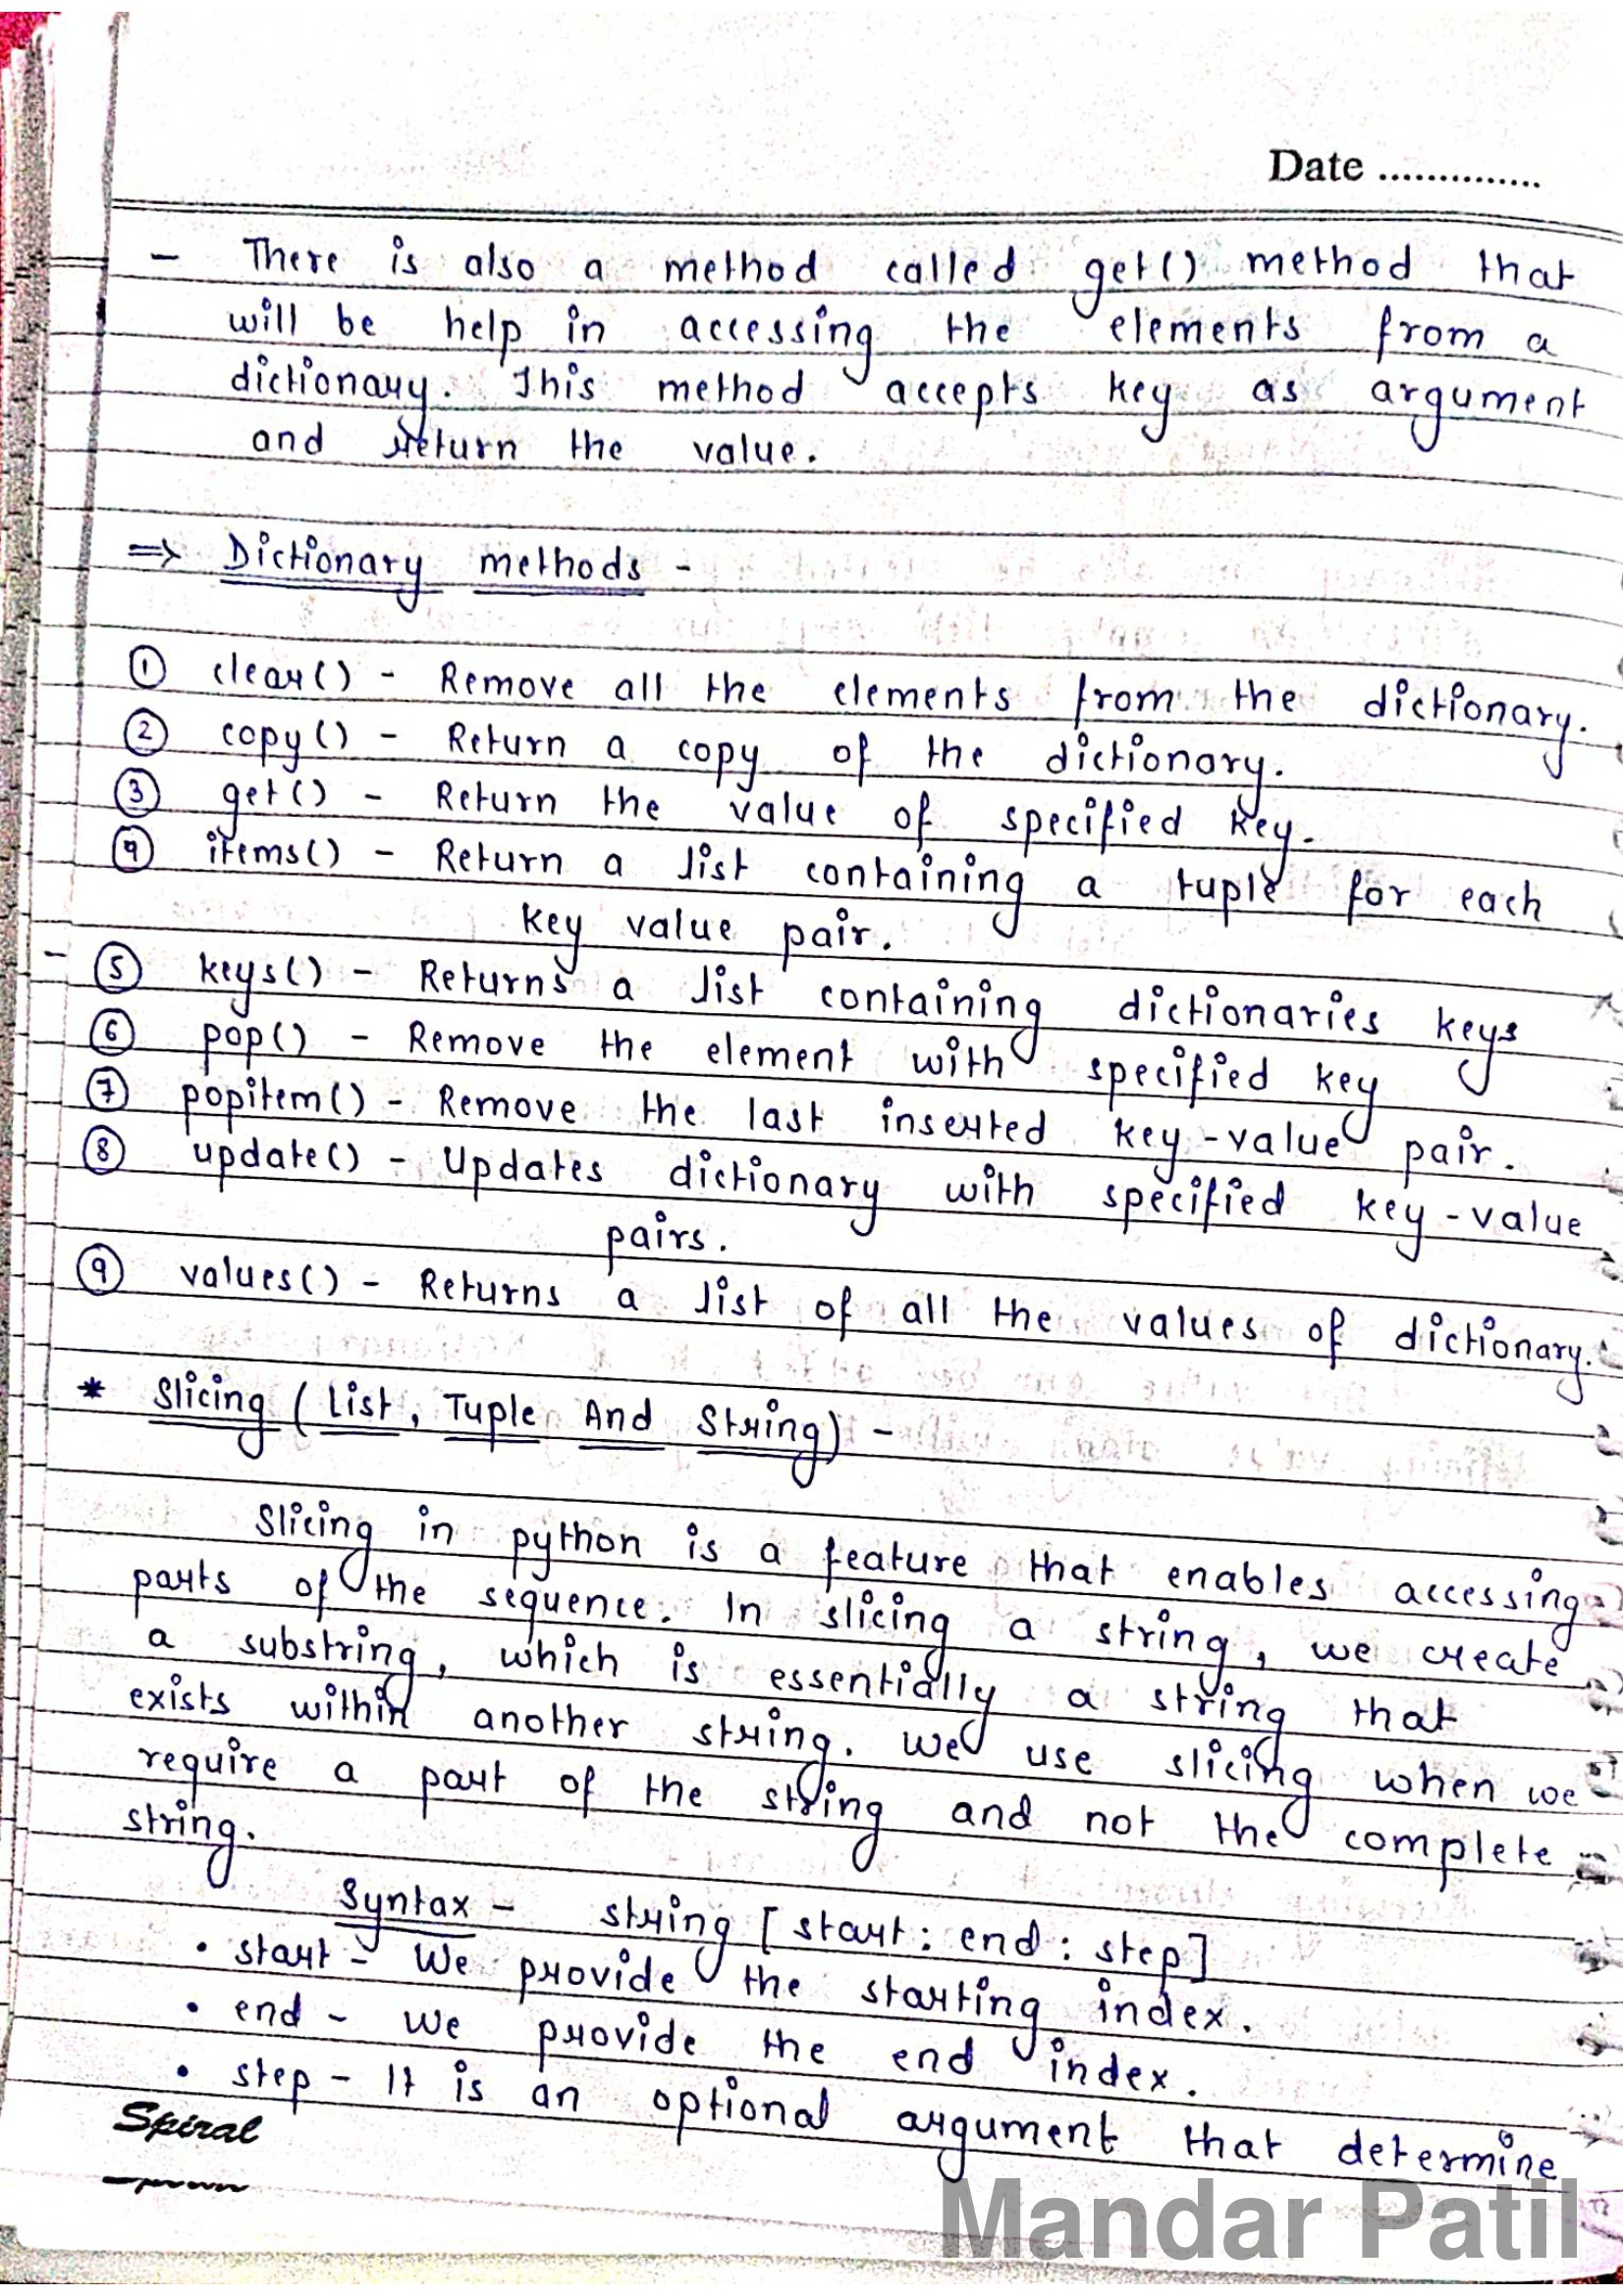 Date ..............
- There is also a method called get() method that
will be help in accessing the elements from a
dictionary. This method accepts key as argument
and return the value.
=> Dictionary methods -
① clear() - Remove all the elements from the dictionary.
② copy() - Return a copy of the dictionary.
③ get() - Return the value of specified key.
④ items() - Return a list containing a tuple for each
key value pair.
- ⑤ keys() - Returns a list containing dictionaries keys
⑥ pop() - Remove the element with specified key
⑦ popitem() - Remove the last inserted key-value pair.
⑧ update() - Updates dictionary with specified key-value
pairs.
⑨ values() - Returns a list of all the values of dictionary.
* Slicing (List, Tuple And String) -
Slicing in python is a feature that enables accessing
parts of the sequence. In slicing a string, we create
a substring, which is essentially a string that
exists within another string. We use slicing when we
require a part of the string and not the complete
string.
Syntax - string [start : end : step]
• start - We provide the starting index.
• end - We provide the end index.
• step - It is an optional argument that determine
Spiral
Mandar Patil